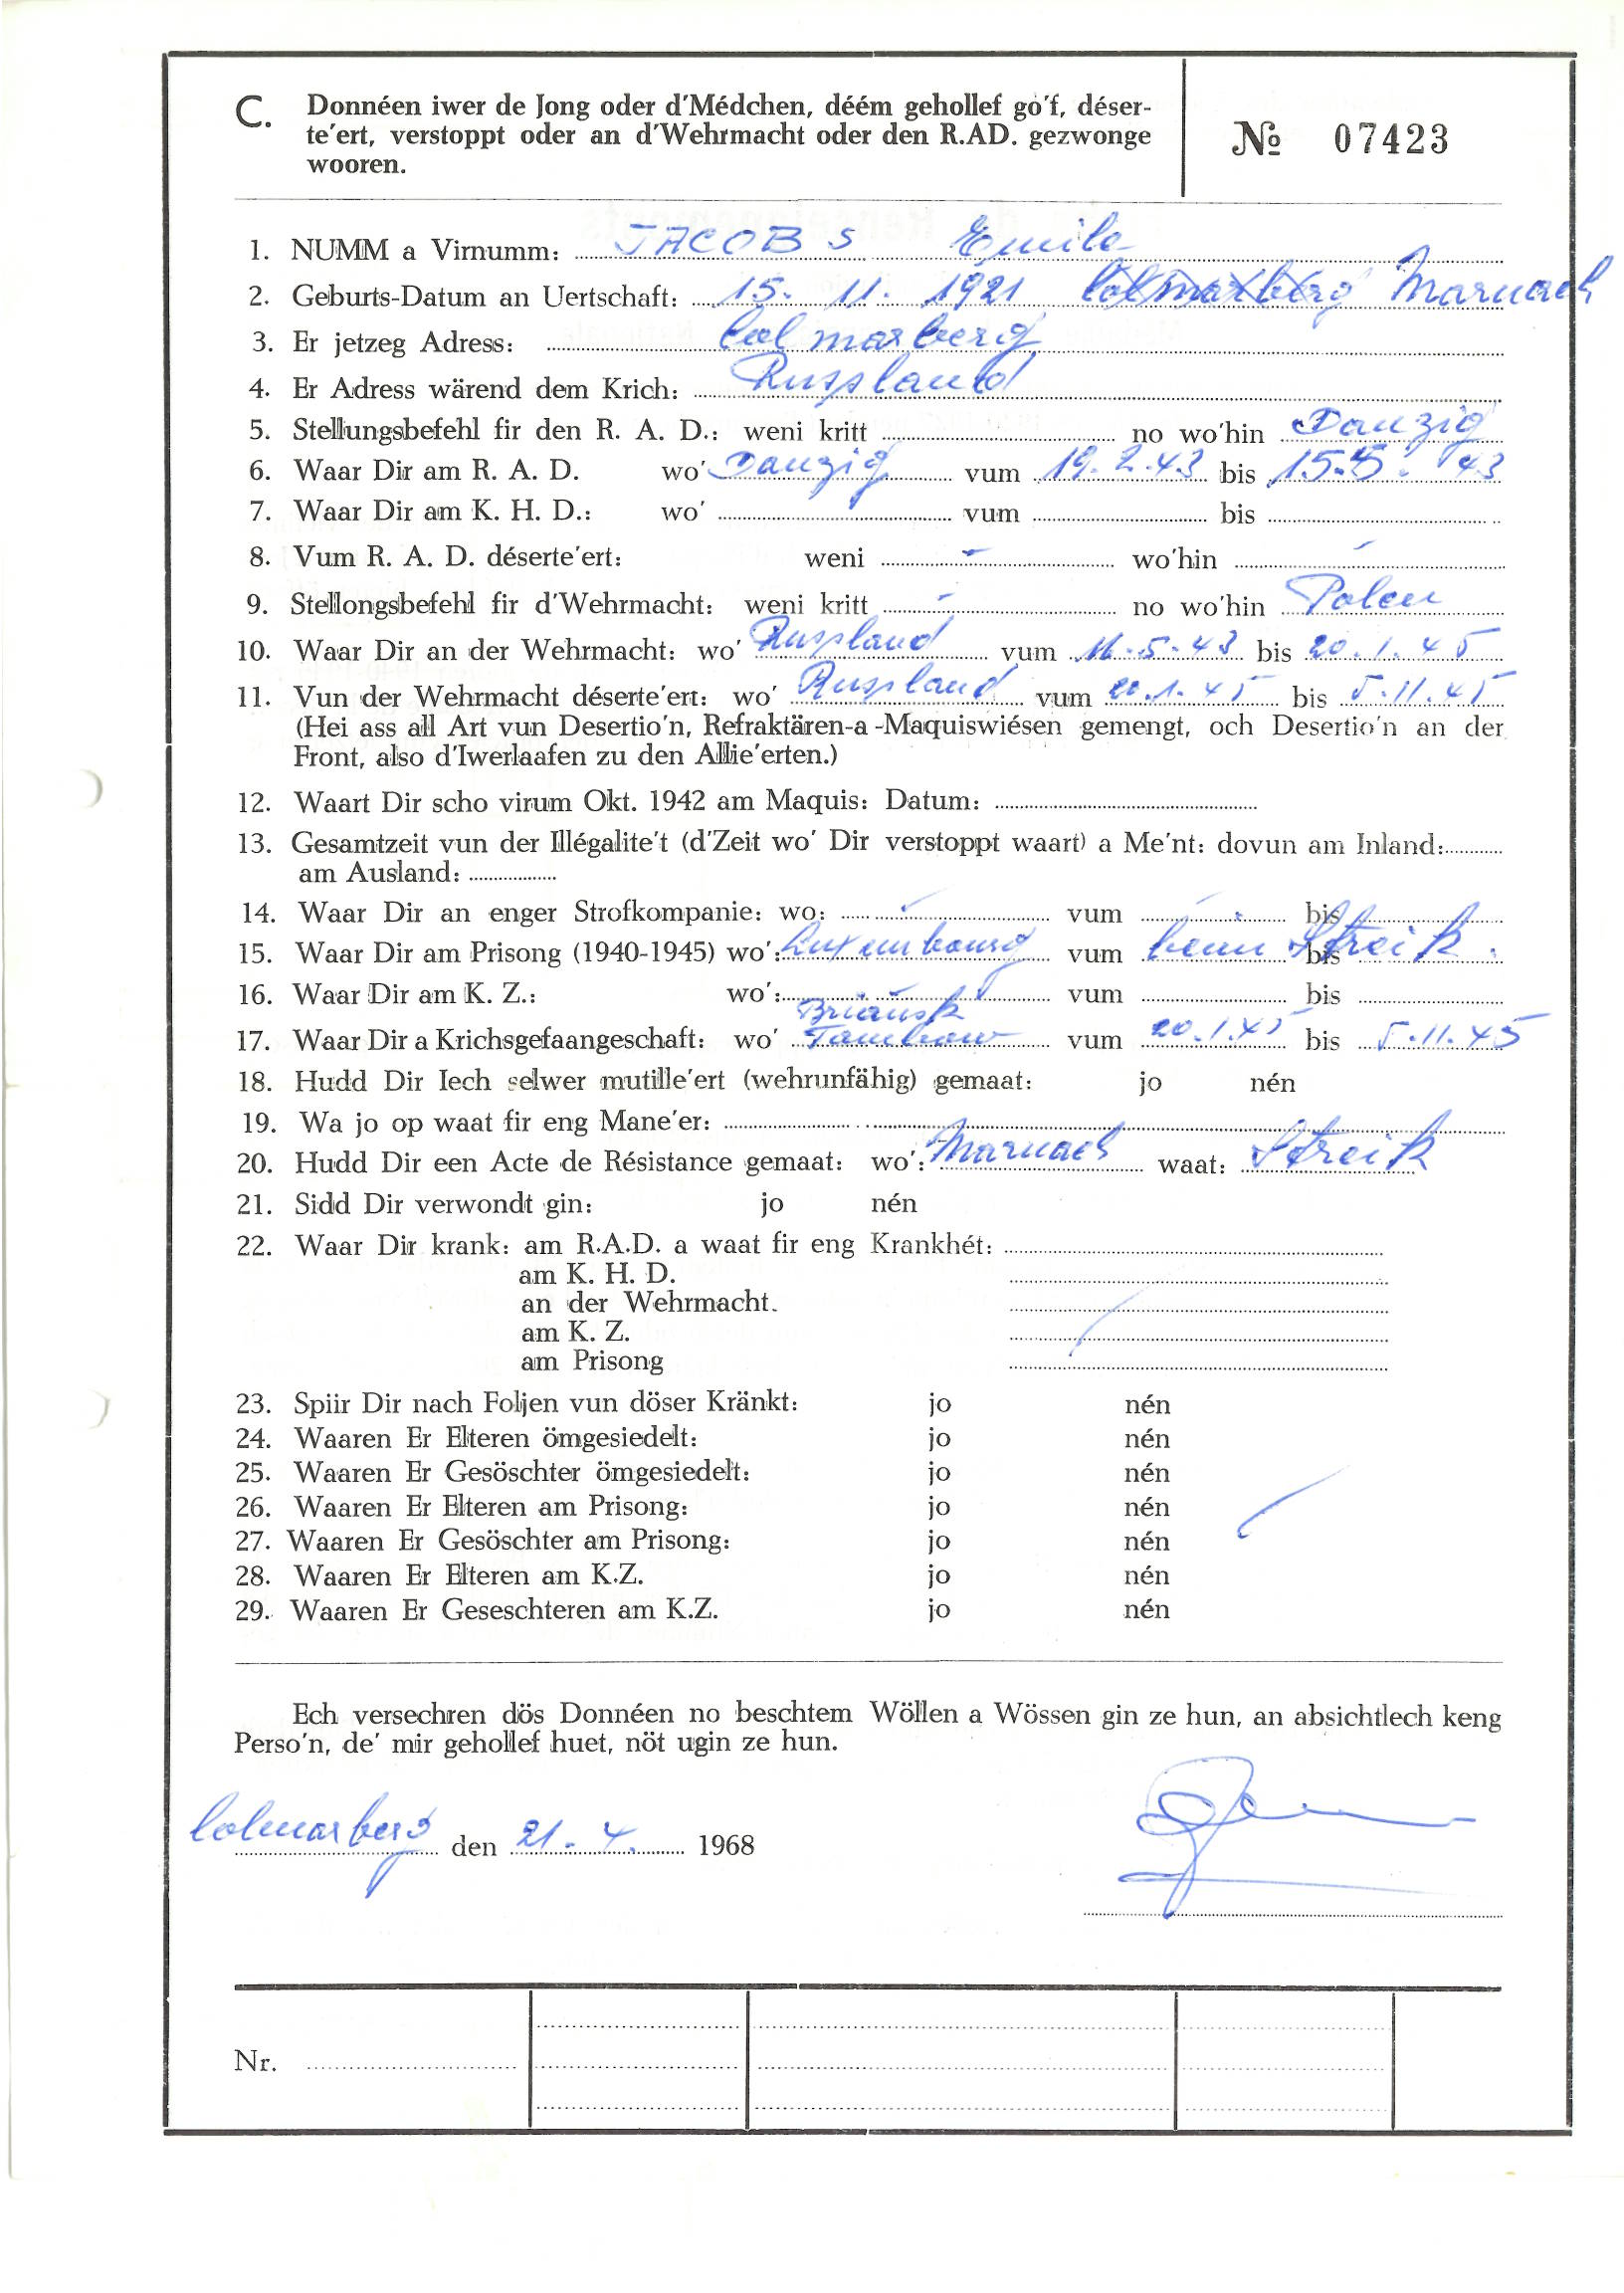 C. Donnéen iwer de Jong oder d'Médchen, déém gehollef go'f, déser-
te'ert, verstoppt oder an d'Wehrmacht oder den R.AD. gezwonge
wooren.
№ 07423
1. NUMM a Virnumm: JACOBS Emile
2. Geburts-Datum an Uertschaft: 15. 11. 1921 Colmarberg Marnach
3. Er jetzeg Adress: Colmarberg
4. Er Adress wärend dem Krich: Russland
5. Stellungsbefehl fir den R. A. D.: weni kritt no wo'hin Danzig
6. Waar Dir am R. A. D. wo' Danzig vum 19.2.43 bis 15.5. 43
7. Waar Dir am K. H. D.: wo' vum bis
8. Vum R. A. D. déserte'ert: weni - wo'hin -
9. Stellongsbefehl fir d'Wehrmacht: weni kritt - no wo'hin Polen
10. Waar Dir an der Wehrmacht: wo' Russland vum 16.5.43 bis 20.1.45
11. Vun der Wehrmacht déserte'ert: wo' Russland vum 20.1.45 bis 5.11.45
(Hei ass all Art vun Desertio'n, Refraktären-a-Maquiswiésen gemengt, och Desertio'n an der
Front, also d'Iwerlaafen zu den Allie'erten.)
12. Waart Dir scho virum Okt. 1942 am Maquis: Datum:
13. Gesamtzeit vun der Illégalite't (d'Zeit wo' Dir verstoppt waart) a Me'nt: dovun am Inland:
am Ausland:
14. Waar Dir an enger Strofkompanie: wo: - vum - bis
15. Waar Dir am Prisong (1940-1945) wo': Luxembourg vum beim bis Streik.
16. Waar Dir am K. Z.: wo': vum bis
Briansk
17. Waar Dir a Krichsgefaangeschaft: wo' Tambow vum 20.1.45 bis 5.11.45
18. Hudd Dir Iech selwer mutille'ert (wehrunfähig) gemaat: jo nén
19. Wa jo op waat fir eng Mane'er:
20. Hudd Dir een Acte de Résistance gemaat: wo': Marnach waat: Streik
21. Sidd Dir verwondt gin: jo nén
22. Waar Dir krank: am R.A.D. a waat fir eng Krankhét:
am K. H. D.
an der Wehrmacht.
am K. Z.
am Prisong
23. Spiir Dir nach Foljen vun döser Kränkt: jo nén
24. Waaren Er Elteren ömgesiedelt: jo nén
25. Waaren Er Gesöschter ömgesiedelt: jo nén
26. Waaren Er Elteren am Prisong: jo nén
27. Waaren Er Gesöschter am Prisong: jo nén
28. Waaren Er Elteren am K.Z. jo nén
29. Waaren Er Geseschteren am K.Z. jo nén
Ech versechren dös Donnéen no beschtem Wöllen a Wössen gin ze hun, an absichtlech keng
Perso'n, de' mir gehollef huet, nöt ugin ze hun.
Colmarberg den 21.4. 1968
Nr.